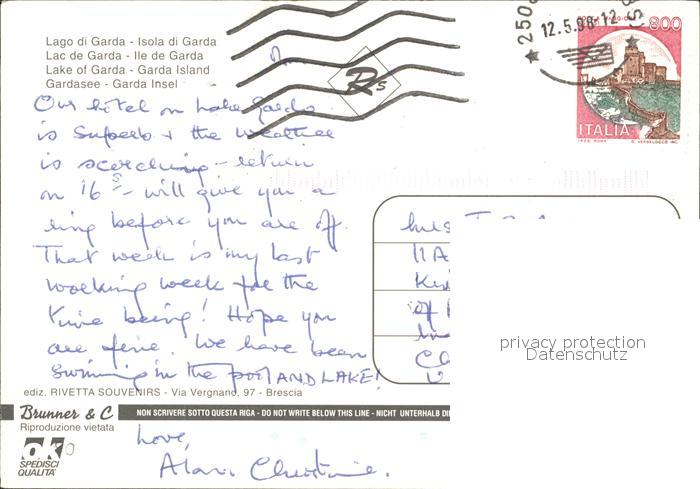 Lago di Garda - Isola di Garda
Lac de Garda - Ile de Garda
Lake of Garda - Garda Island
Gardasee - Garda Insel
Our hotel on Lake Garda
is superb + the weather
is scorching - return
on 16 - will give you a
ring before you are off.
That week is my last
working week for the
time being! Hope you
are fine. We have been
swimming in the pool AND LAKE!
ediz. RIVETTA SOUVENIRS - Via Vergnano, 97 - Brescia
Brunner & C
NON SCRIVERE SOTTO QUESTA RIGA - DO NOT WRITE BELOW THIS LINE - NICHT UNTERHALB DI
Riproduzione vietata
ok
SPEDISCI
QUALITA'
Love,
Alan, Christine.
12.5.98-12
800
ITALIA
Mrs
11A
privacy protection
Datenschutz